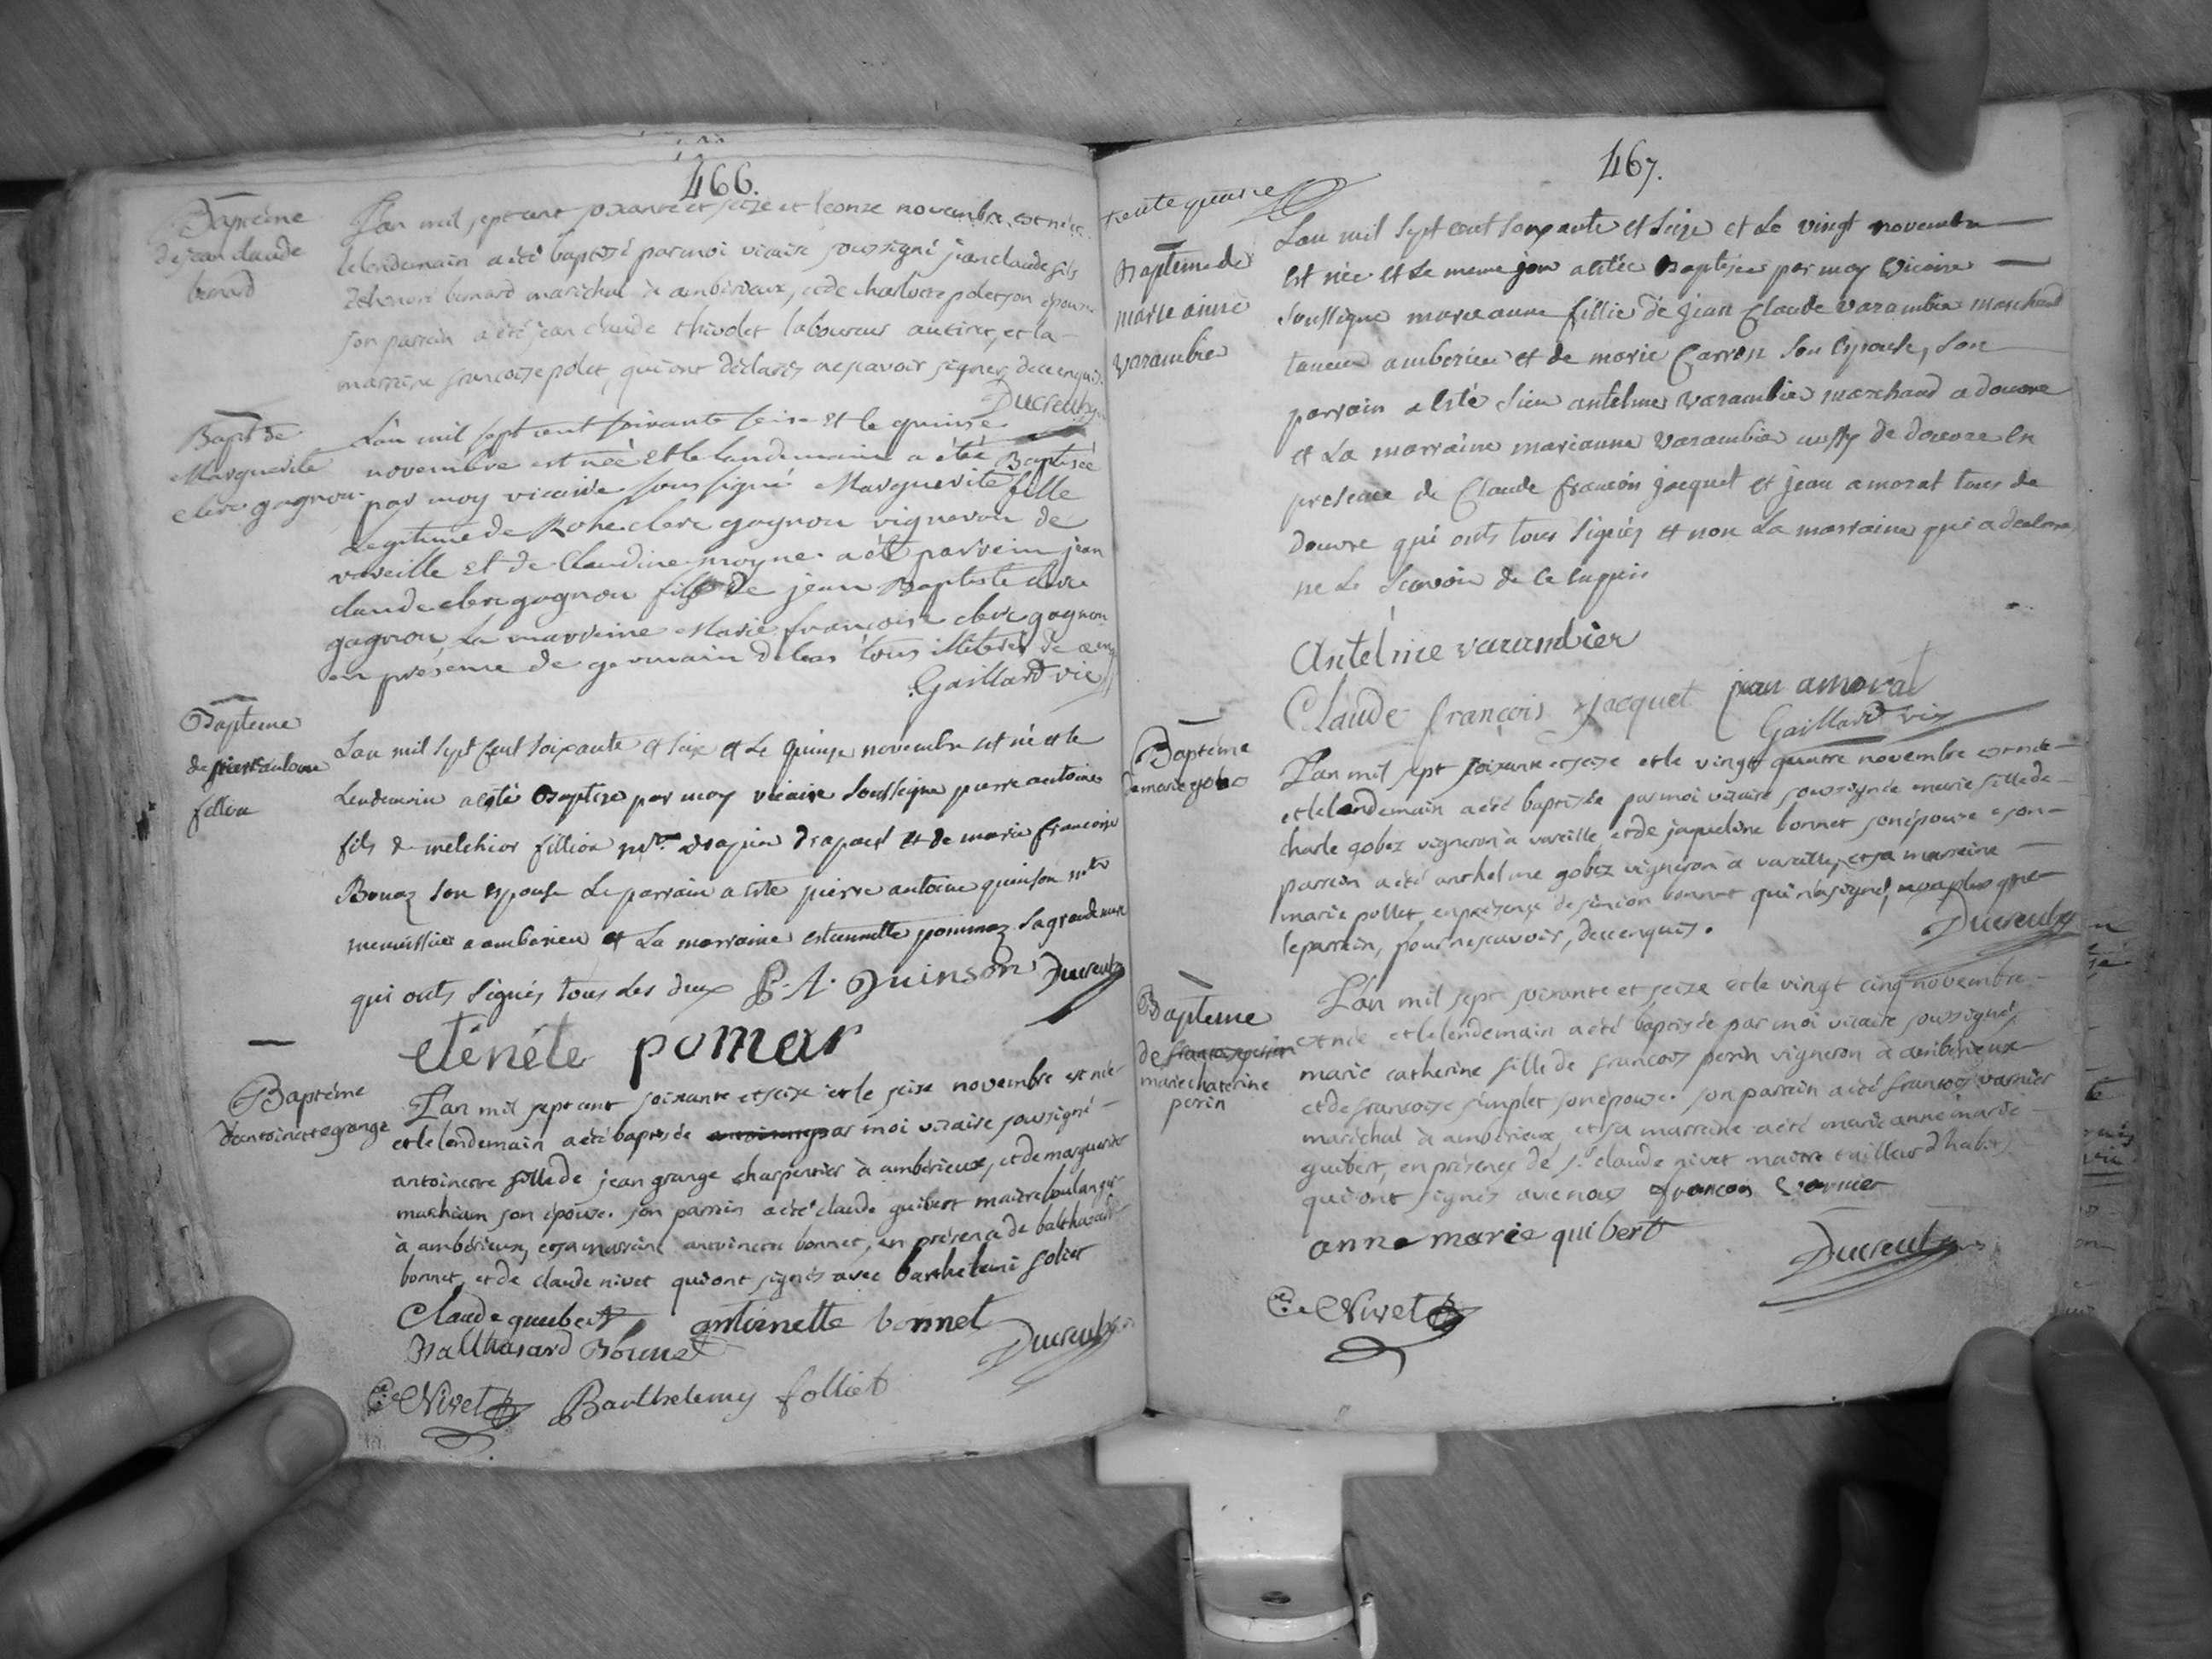 466.
Baptême
de jean claude
benard
L'an mil sept cent soixante et seize et le onze novembre est né et
le lendemain a été baptisé par moi vicaire soussigné jean claude fils
benard maréchal à ambérieux, et de charlotte polet son épouse
son parrain a été jean claude thivolet laboureur au tiret, et la
marraine francoise polet, qui ont déclarés ne scavoir signer, de ce enquis.
Ducreux
Bapt de
Marguerite
clerc gagnou
L'an mil sept cent soixante seize et le quinse
novembre est née et le landemain a étée Baptisée
par moy vicaire sous signé Marguerite fille
Legitime de clerc gagnou vigneron de
vareille et de Claudine moyne. a été parrein jean
claude clerc gagnou fils de jean Baptiste clerc
gagnou La marreine Marie françoise clerc gagnou
en présence de germain tous illiterés de
Gaillard vic
Baptême
de pierre antoine
fillion
Lan mil sept Cent soixante et seize et Le quinze novembre est né et le
Lendemain a esté Baptize par moy vicaire Soussigne pierre antoine
fils de melchior fillion drapier et de marie francoise
Bonaz son epouse Le parrain a este pierre antoine quinson mtre
menuissier a amberieu et La marraine estiennette pommaz sa grande mere
qui onts signés tous Les deux P. A. Quinson Ducreux
eténéte pomar
Baptême
d'antoinette grange
L'an mil sept cent soixante et seize et le seize novembre est née
et le lendemain a été baptisée par moi vicaire soussigné
antoinette fille de jean grange charpentier à ambérieux, et de marguerite
son épouse. son parrain a été claude guibert maitre boulanger
à ambérieux, et sa marraine antoinette bonnet, en présence de balthazard
bonnet, et de claude nivet qui ont signés avec barthelemi foliet
Claude guibert antoinette bonnet
Balthasard Bonnet Ducreux
C. Nivet Barthelemy folliet
467.
trente quatre
Baptême de
marie anne
varambier
Lan mil sept cent soixante et seize et Le vingt novembre
est née et Le meme jour a estée Baptisée par moy vicaire
soussigne marie anne fillie de jean Claude varambier marchand
taneur amberieu et de marie Carron son Epouse, son
parrain a esté sieur antelme varambier marchand a douvre
et La marraine marianne varambier aussy de douvre en
presence de Claude francois jacquet et jean amorat tous de
douvre qui onts tous signés et non La marraine qui a declare
ne Le scavoir de ce enquis
Antelme varambier
Claude françois jacquet jean amorat
Gaillard vic
Baptême
de marie gobez
L'an mil sept soixante et seize et le vingt quatre novembre est née
et le lendemain a été baptisée par moi vicaire soussigné marie fille de
charle gobez vigneron à vareille et de jaqueline bonnet son épouse son
parrein a été anthelme gobez vigneron à vareille, et sa marreine
marie pollet, en présence de simeon bonnet qui n'a signé, non plus que
le parrein, pour ne scavoir, de ce enquis.
Ducreux
Baptême
de françoise perrin
marie chaterine
perin
L'an mil sept soixante et seize et le vingt cinq novembre
est née et le lendemain a été baptisée par moi vicaire soussigné,
marie catherine fille de francois perin vigneron à ambérieux
et de francoise simplet son épouse. son parrein a été francois varnier
maréchal à ambérieux, et sa marreine a été marie anne marie
guibert, en présence de sr claude nivet maitre tailleur d'habits
qui ont signés avec nous francois varnier
anne marie guibert
Ducreux
C. Nivet